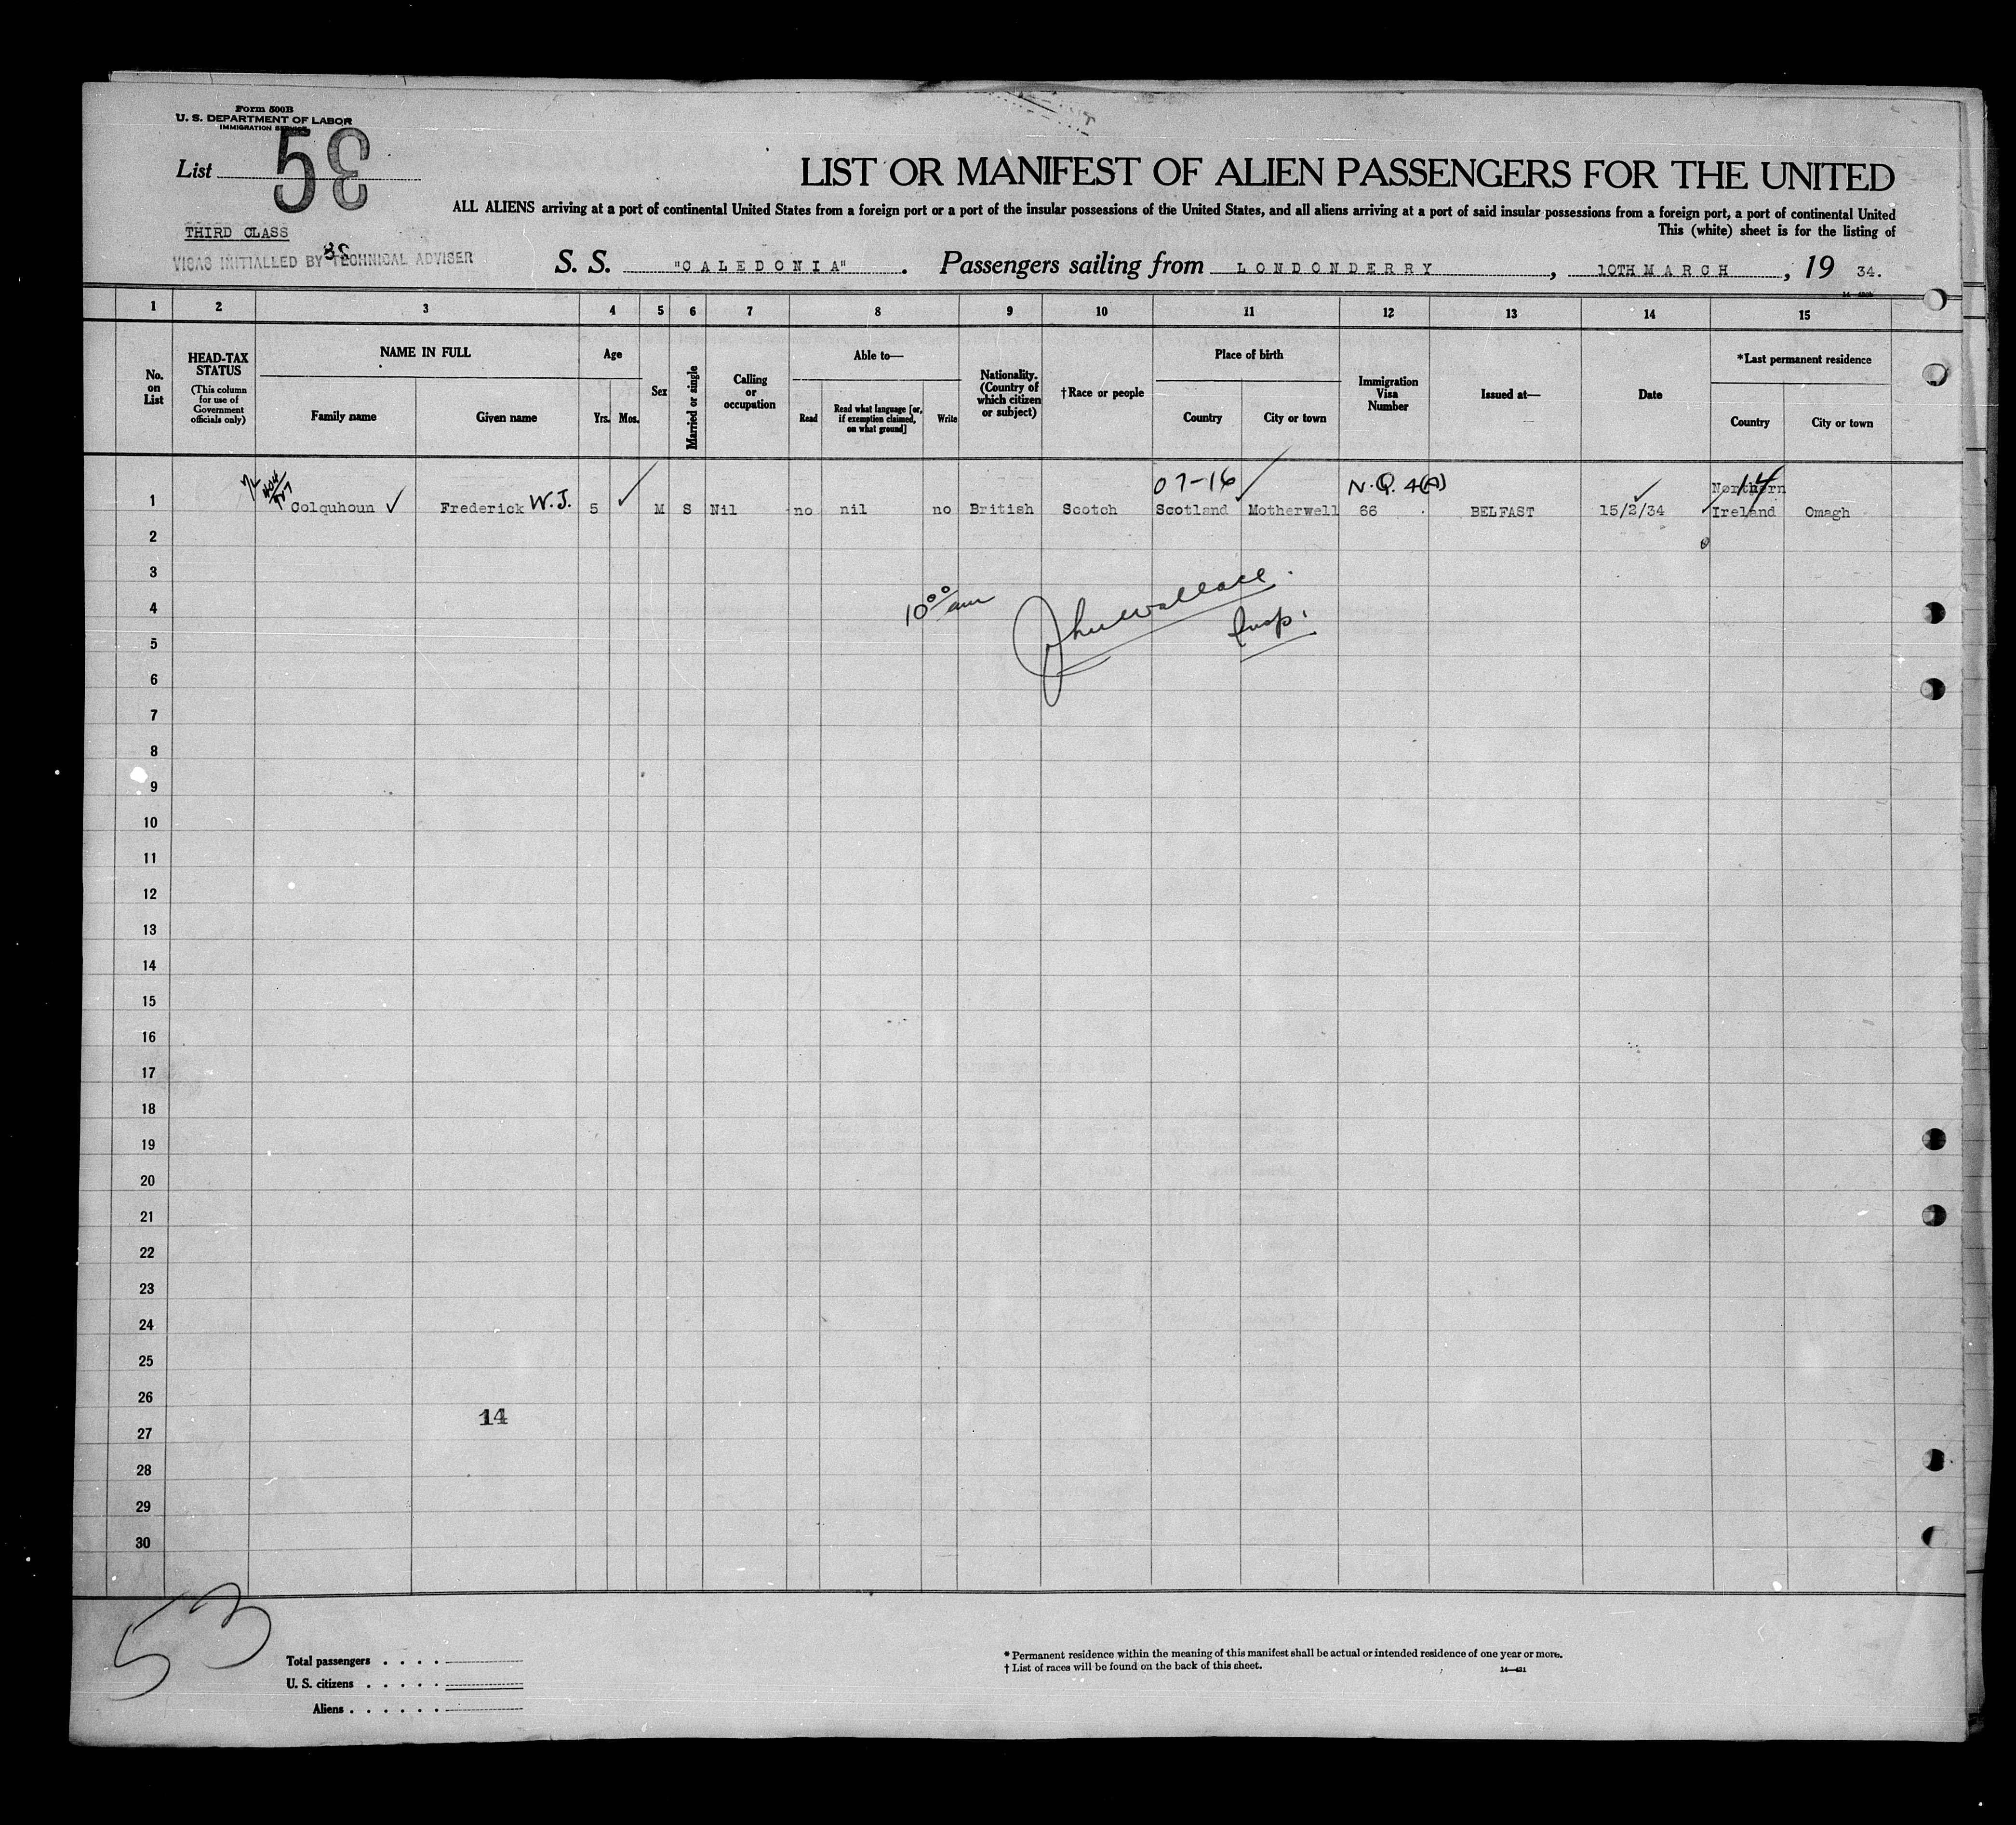 Form 500B
U. S. DEPARTMENT OF LABOR
IMMIGRATION SERVICE
List 53
LIST OR MANIFEST OF ALIEN PASSENGERS FOR THE UNITED
ALL ALIENS arriving at a port of continental United States from a foreign port or a port of the insular possessions of the United States, and all aliens arriving at a port of said insular possessions from a foreign port, a port of continental United
THIRD CLASS
This (white) sheet is for the listing of
VISAS INITIALLED BY TECHNICAL ADVISER
S. S. "CALEDONIA". Passengers sailing from LONDONDERRY, 10TH MARCH, 19 34.
1 2 3 4 5 6 7 8 9 10 11 12 13 14 15
No. on List
HEAD-TAX STATUS
(This column for use of Government officials only)
NAME IN FULL
Family name
Given name
Age
Yrs. Mos.
Sex
Married or single
Calling or occupation
Able to—
Read
Read what language [or, if exemption claimed, on what ground]
Write
Nationality. (Country of which citizen or subject)
†Race or people
Place of birth
Country
City or town
Immigration Visa Number
Issued at—
Date
*Last permanent residence
Country
City or town
07-16 N.Q. 4(A) 14
1 Colquhoun ✓ Frederick W.J. 5 ✓ M S Nil no nil no British Scotch Scotland Motherwell 66 BELFAST 15/2/34 Northern Ireland Omagh
2
3
4
10 00 am John Wallace. Insp.
5
6
7
8
9
10
11
12
13
14
15
16
17
18
19
20
21
22
23
24
25
26
14
27
28
29
30
53
Total passengers . . . .
U. S. citizens . . . . .
Aliens . . . . . .
* Permanent residence within the meaning of this manifest shall be actual or intended residence of one year or more.
† List of races will be found on the back of this sheet.
14—421